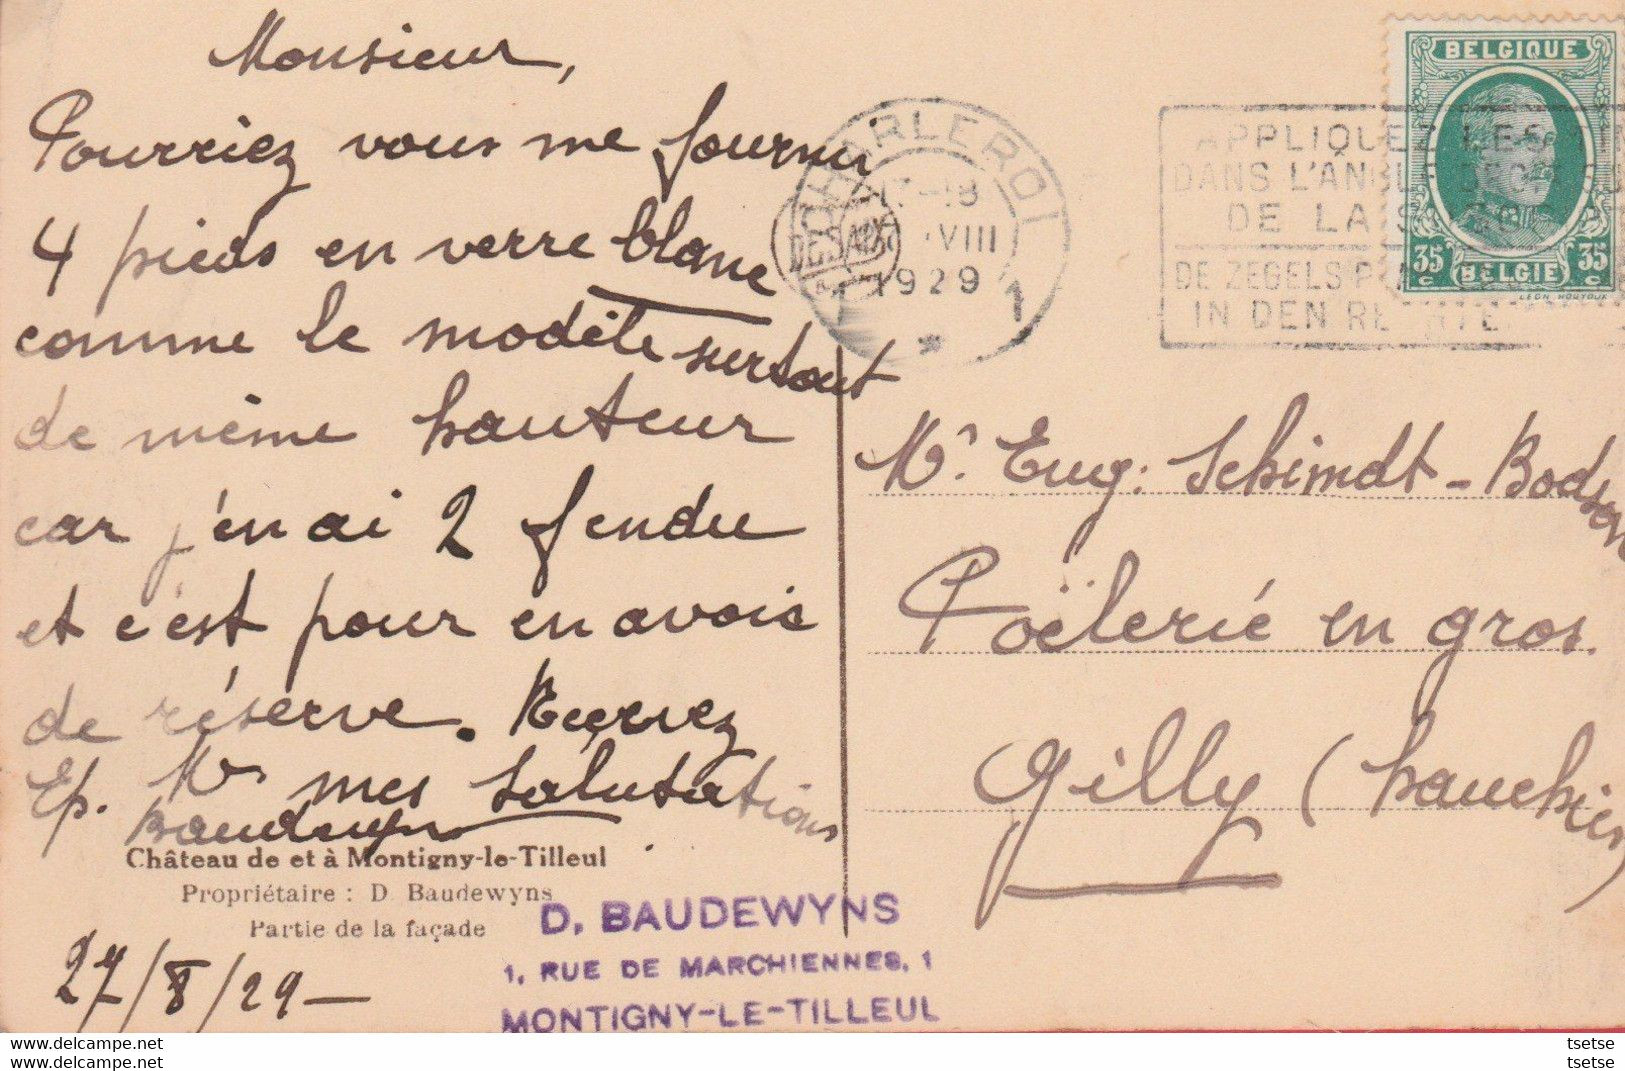 Monsieur,
Pourriez vous me fournir
4 pieds en verre blanc
comme le modèle surtout
de même hauteur
car j'en ai 2 fendu
et c'est pour en avoir
de réserve. Recevez
Ep. Mr mes salutations
Baudewyns
Château de et à Montigny-le-Tilleul
Propriétaire : D. Baudewyns
Partie de la façade
27/8/29 -
D. BAUDEWYNS
1, RUE DE MARCHIENNES, 1
MONTIGNY-LE-TILLEUL
CHARLEROI
17-18
VIII
1929
1
APPLIQUEZ LES
DANS L'ANGLE
DE LA
DE ZEGELS
IN DEN
BELGIQUE
35 c BELGIË 35 c
LEON HOUYOUX
Mr. Eug: Schimdt-Bodson
Poëlerié en gros.
Gilly (hauchies)
www.delcampe.net
tsetse
www.delcampe.net
tsetse